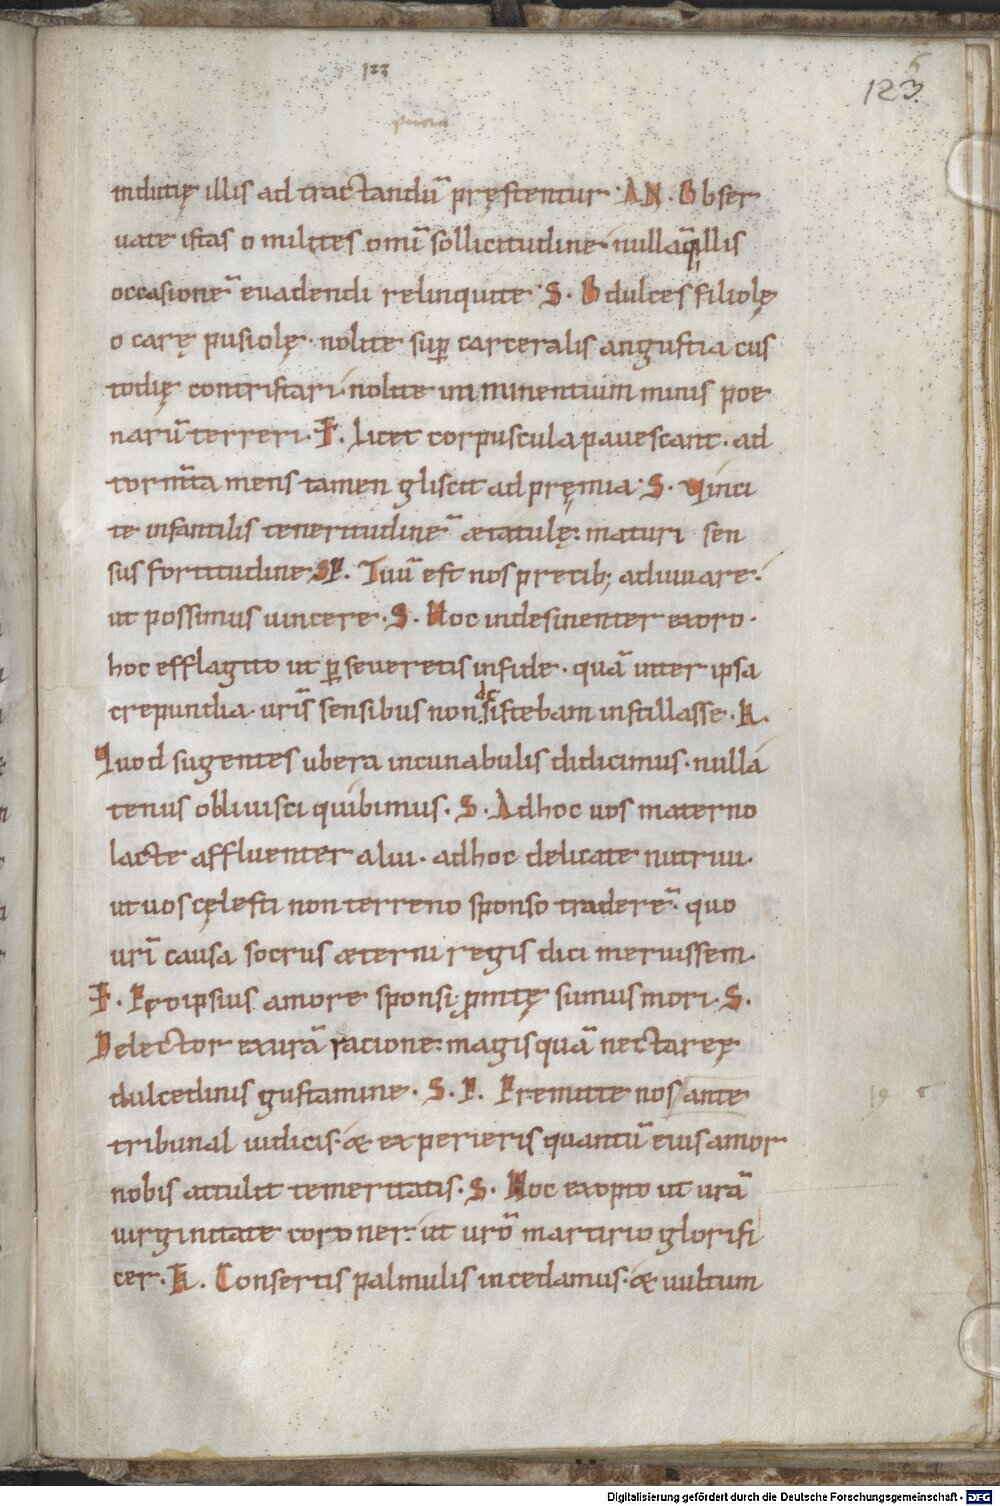 122
125
indutię illis ad tractandū pręstentur. AN. Obser
uate istas o milites omī sollicitudine. nullāq; illis
occasionē euadendi relinquite. S. O dulces filiolę
o carę pusiolę. nolite sup̄ carceralis angustia cus
todię contristari. nolite imminentium minis poe
narū terreri. F. Licet corpuscula pauescant. ad
torm̄ta mens tamen gliscit ad pręmia. S. Vinci
te infantilis teneritudinē ætatulę. maturi sen
sus fortitudine. SP. Tuū est nos precib; adiuuare.
ut possimus uincere. S. Hoc indesinenter exoro.
hoc efflagito ut p̱seueretis in fide. quā inter ipsa
crepundia. uris̄ sensibus non desistebam instillasse. K.
Quod sugentes ubera in cunabulis didicimus. nulla
tenus obliuisci quibimus. S. Ad hoc uos materno
lacte affluenter alui. ad hoc delicate nutriui.
ut uos cęlesti non terreno sponso traderē. quo
urī causa socrus æterni regis dici meruissem.
F. Pro ipsius amore sponsi p̄mtę sumus mori. S.
Delector ex urā racione. magis quā nectareę
dulcedinis gustamine. S. P. Premitte nos ante
tribunal iudicis. & experieris quantū eius amor
nobis attulit temeritatis. S. Hoc exopto ut urā
uirginitate coroner. ut urō martirio glorifi
cer. K. Consertis palmulis incedamus. & uultum
Digitalisierung gefördert durch die Deutsche Forschungsgemeinschaft - DFG